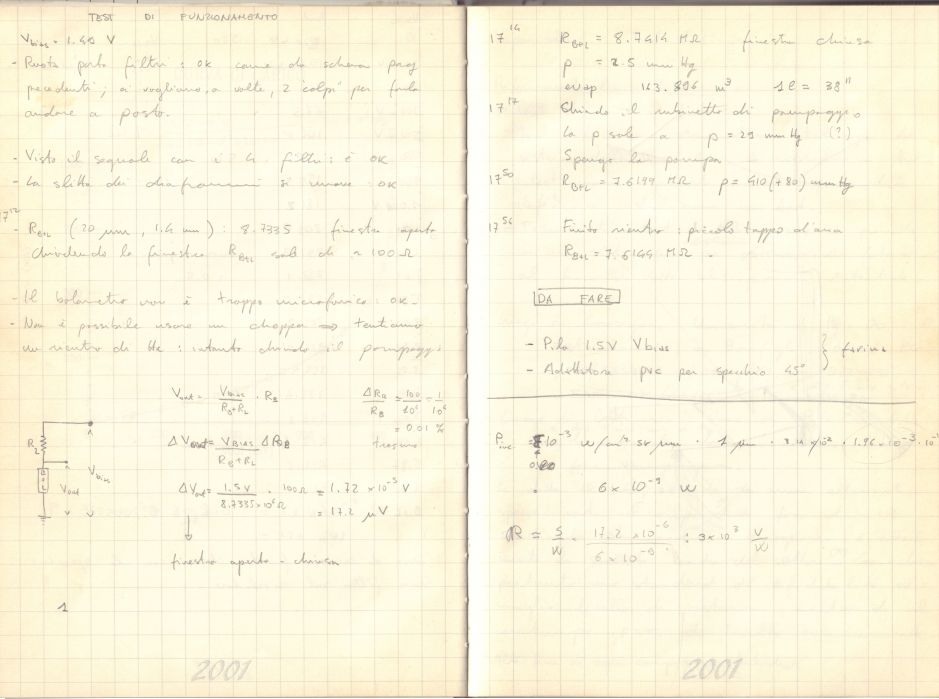 TEST DI FUNZIONAMENTO
V bias = 1.40 V
- Ruota porta filtri : OK come da schema pag
precedenti ; ci vogliono, a volte, 2 "colpi" per farla
andare a posto.
- Visto il segnale con i 4 filtri : è OK
- La slitta dei diaframmi si muove : OK
17 12
- R B+L (20 μm, 1.4 mm) : 8.7335 finestra aperta
chiudendo la finestra R B+L sale di ~ 100 Ω
- Il bolometro non è troppo microfonico : OK -
- Non è possibile usare un chopper => tentiamo
un rientro di He : intanto chiudo il pompaggio
V out = V BIAS / R B+R L · R B
Δ R B / R B = 100 / 10^6 = 1 / 10^4
= 0.01 %
Δ V out = V BIAS / R B + R L Δ R B
Δ V out = 1.5 V / 8.7335 x 10^6 Ω · 100 Ω = 1.72 x 10^-5 V
= 17.2 μV
R L
BOL
V bias
V out
finestra aperta - chiusa
1
2001
17 14 R B+L = 8.7414 MΩ finestra chiusa
p = 2.5 mm Hg
evap 163.896 m^3 1 l = 38"
17 17 Chiudo il rubinetto di pompaggio
La p sale a p = 29 mm Hg (?)
Spengo la pompa
17 50 R B+L = 7.6199 MΩ p = 410 (+80) mm Hg
17 56 Finito rientro : piccolo tappo d'aria
R B+L = 7.6144 MΩ -
DA FARE
- Pila 1.5V V bias
- Adattatore pvc per specchio 45°
P inc = 10^-3 W/cm^2 sr μm · 1 μm ·
6 x 10^-9 W
R = S / W = 17.2 x 10^-6 / 6 x 10^-9 : 3 x 10^3 V / W
2001